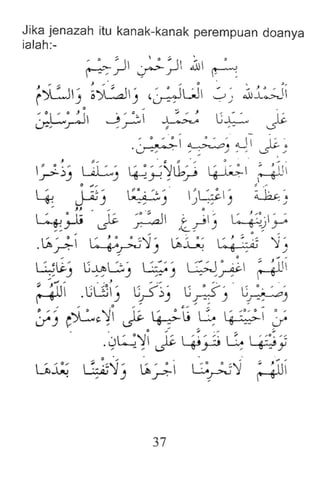 Jika jenazah itu kanak-kanak perempuan doanya
ialah:-
بِسْمِ اللهِ الرَّحْمٰنِ الرَّحِيْمِ
اَلْحَمْدُ لِلّٰهِ رَبِّ الْعَالَمِيْنَ، وَالصَّلَاةُ وَالسَّلَامُ
عَلٰى سَيِّدِنَا مُحَمَّدٍ اَشْرَفِ الْمُرْسَلِيْنَ
وَعَلٰى اٰلِهِ وَصَحْبِهِ اَجْمَعِيْنَ.
اَللّٰهُمَّ اجْعَلْهَا فَرَطًا لِاَبَوَيْهَا وَسَلَفًا وَذُخْرًا
وَعِظَةً وَاعْتِبَارًا وَشَفِيْعًا وَثَقِّلْ بِهَا
مَوَازِيْنَهُمَا وَاَفْرِغِ الصَّبْرَ عَلٰى قُلُوْبِهِمَا
وَلَا تَفْتِنْهُمَا بَعْدَهَا وَلَا تَحْرِمْهُمَا اَجْرَهَا.
اَللّٰهُمَّ اغْفِرْ لِحَيِّنَا وَمَيِّتِنَا وَشَاهِدِنَا وَغَائِبِنَا
وَصَغِيْرِنَا وَكَبِيْرِنَا وَذَكَرِنَا وَاُنْثَانَا. اَللّٰهُمَّ
مَنْ اَحْيَيْتَهَا مِنَّا فَاَحْيِهَا عَلَى الْاِسْلَامِ وَمَنْ
تَوَفَّيْتَهَا مِنَّا فَتَوَفَّهَا عَلَى الْاِيْمَانِ.
اَللّٰهُمَّ لَا تَحْرِمْنَا اَجْرَهَا وَلَا تَفْتِنَّا بَعْدَهَا
37